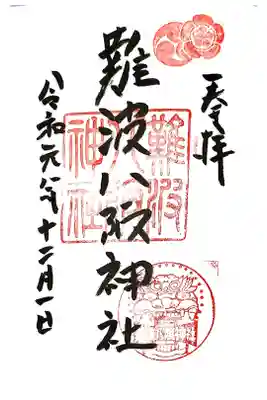 奉拝
難波八阪神社
令和元年十二月一日
難波
八阪
神社